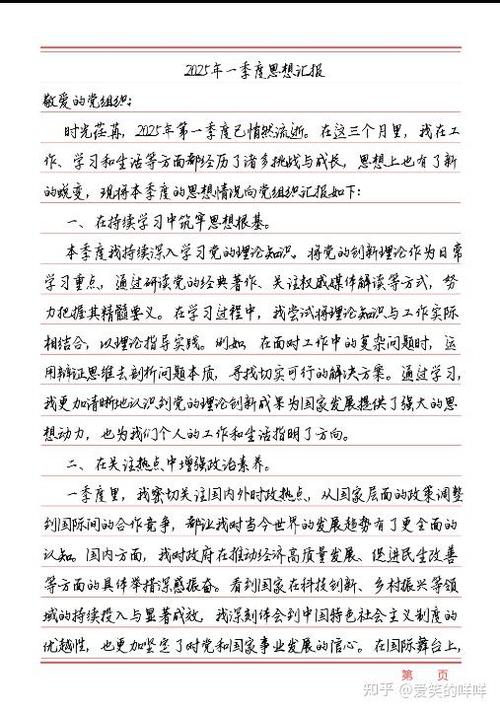 2025年一季度思想汇报
敬爱的党组织：
时光荏苒，2025年第一季度已悄然流逝。在这三个月里，我在工
作、学习和生活等方面都经历了诸多挑战与成长，思想上也有了新
的蜕变，现将本季度的思想情况向党组织汇报如下：
一、在持续学习中筑牢思想根基。
本季度我持续深入学习党的理论知识，将党的创新理论作为日常
学习重点，通过研读党的经典著作、关注权威媒体解读等方式，努
力把握其精髓要义。在学习过程中，我尝试将理论知识与工作实际
相结合，以理论指导实践。例如，在面对工作中的复杂问题时，运
用辩证思维去剖析问题本质，寻找切实可行的解决方案。通过学习，
我更加清晰地认识到党的理论创新成果为国家发展提供了强大的思
想动力，也为我们个人的工作和生活指明了方向。
二、在关注热点中增强政治素养。
一季度里，我密切关注国内外时政热点，从国家层面的政策调整
到国际间的合作竞争，都让我对当今世界的发展趋势有了更全面的
认知。国内方面，我对政府在推动经济高质量发展、促进民生改善
等方面的具体举措深感振奋。看到国家在科技创新、乡村振兴等领
域的持续投入与显著成效，我深刻体会到中国特色社会主义制度的
优越性，也更加坚定了对党和国家事业发展的信心。在国际舞台上，
第 页
知乎 @爱笑的咩咩